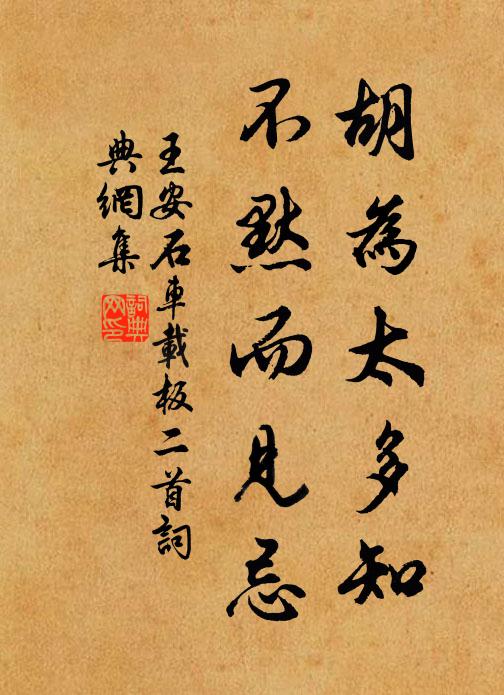 胡為太多知
不默而見忌
王安石車載板二首詞
典網集
詞典網印